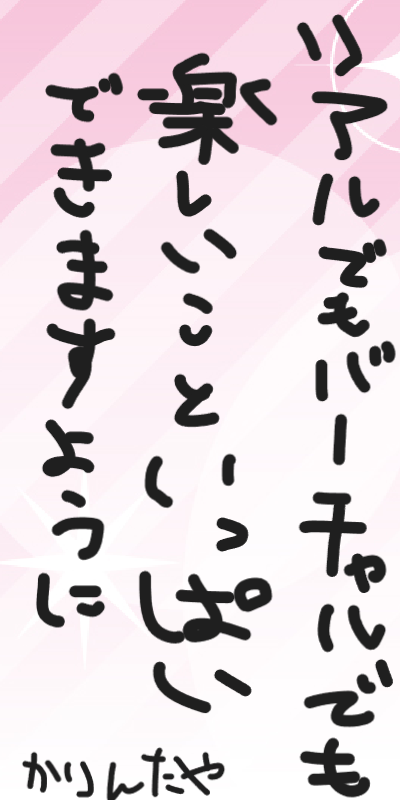 リアルでもバーチャルでも
楽しいこといっぱい
できますように
かりんたや